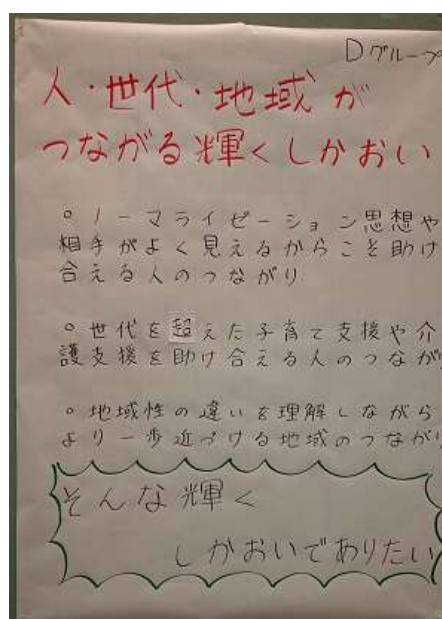 Dグループ
人・世代・地域が
つながる輝くしかおい
○ノーマライゼーション思想や
相手がよく見えるからこそ助け
合える人のつながり
○世代を超えた子育て支援や介
護支援を助け合える人のつながり
○地域性の違いを理解しながら
より一歩近づける地域のつながり
そんな輝く
しかおいでありたい